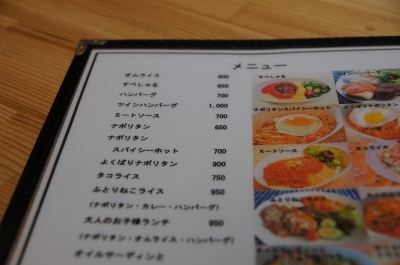 メニュー
オムライス 600
すぺしゃる 850
ハンバーグ 700
ツインハンバーグ 1,000
ミートソース 700
ナポリタン 650
ナポリタン
スパイシーホット 700
よくばりナポリタン 900
タコライス 750
ふとりねこライス 950
(ナポリタン・カレー・ハンバーグ)
大人のお子様ランチ 950
(ナポリタン・オムライス・ハンバーグ)
オイルサーディンと
すぺしゃる
ツインハンバーグ
ナポリタンスパイシーホット
よくばりナポリタン
ミートソース
タコライス